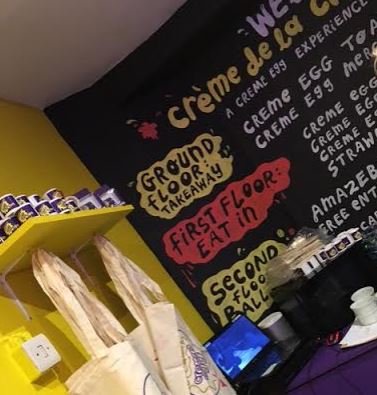 WE
CRÈME de la C
A CREME EGG EXPERIENCE
CREME EGG TOA
CREME EGG MER
CREME EGG
CREME EGG
CREME E
STRAW
AMAZEB
FREE ENT
GROUND
FLOOR:
TAKEAWAY
FIRST FLOOR:
EAT in
SECOND
FLOO
BALL